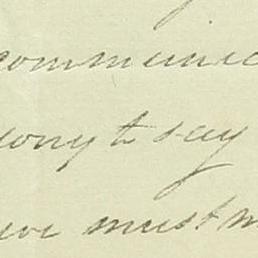 communic
sorry to say
we must m